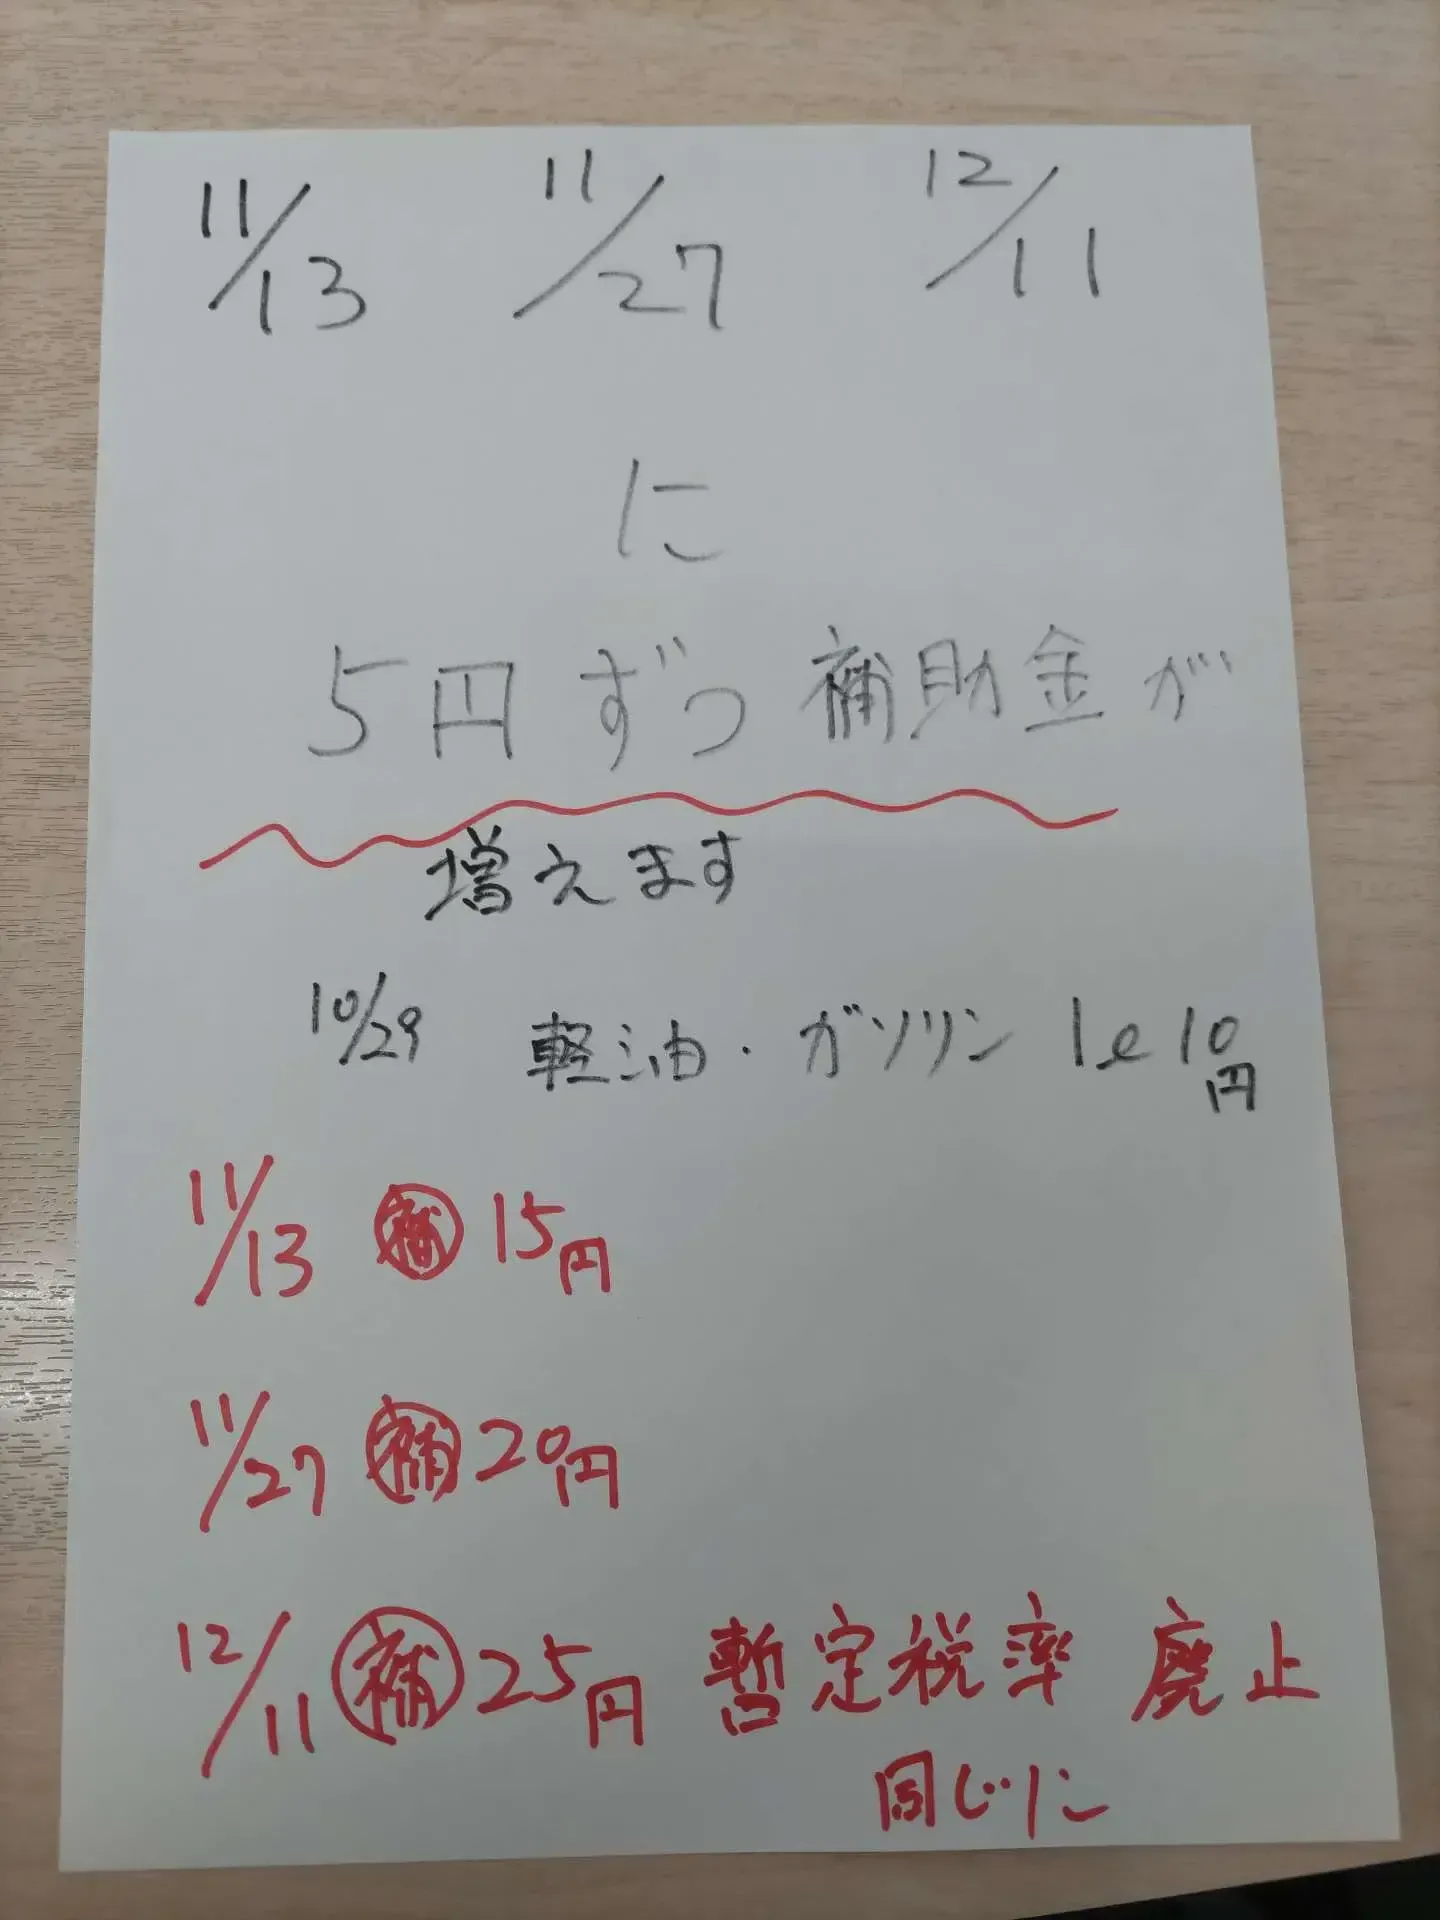 11/13 11/27 12/11
に
5円ずつ補助金が
増えます
10/29 軽油・ガソリン 1ℓ 10円
11/13 補 15円
11/27 補 20円
12/11 補 25円 暫定税率 廃止
同じに